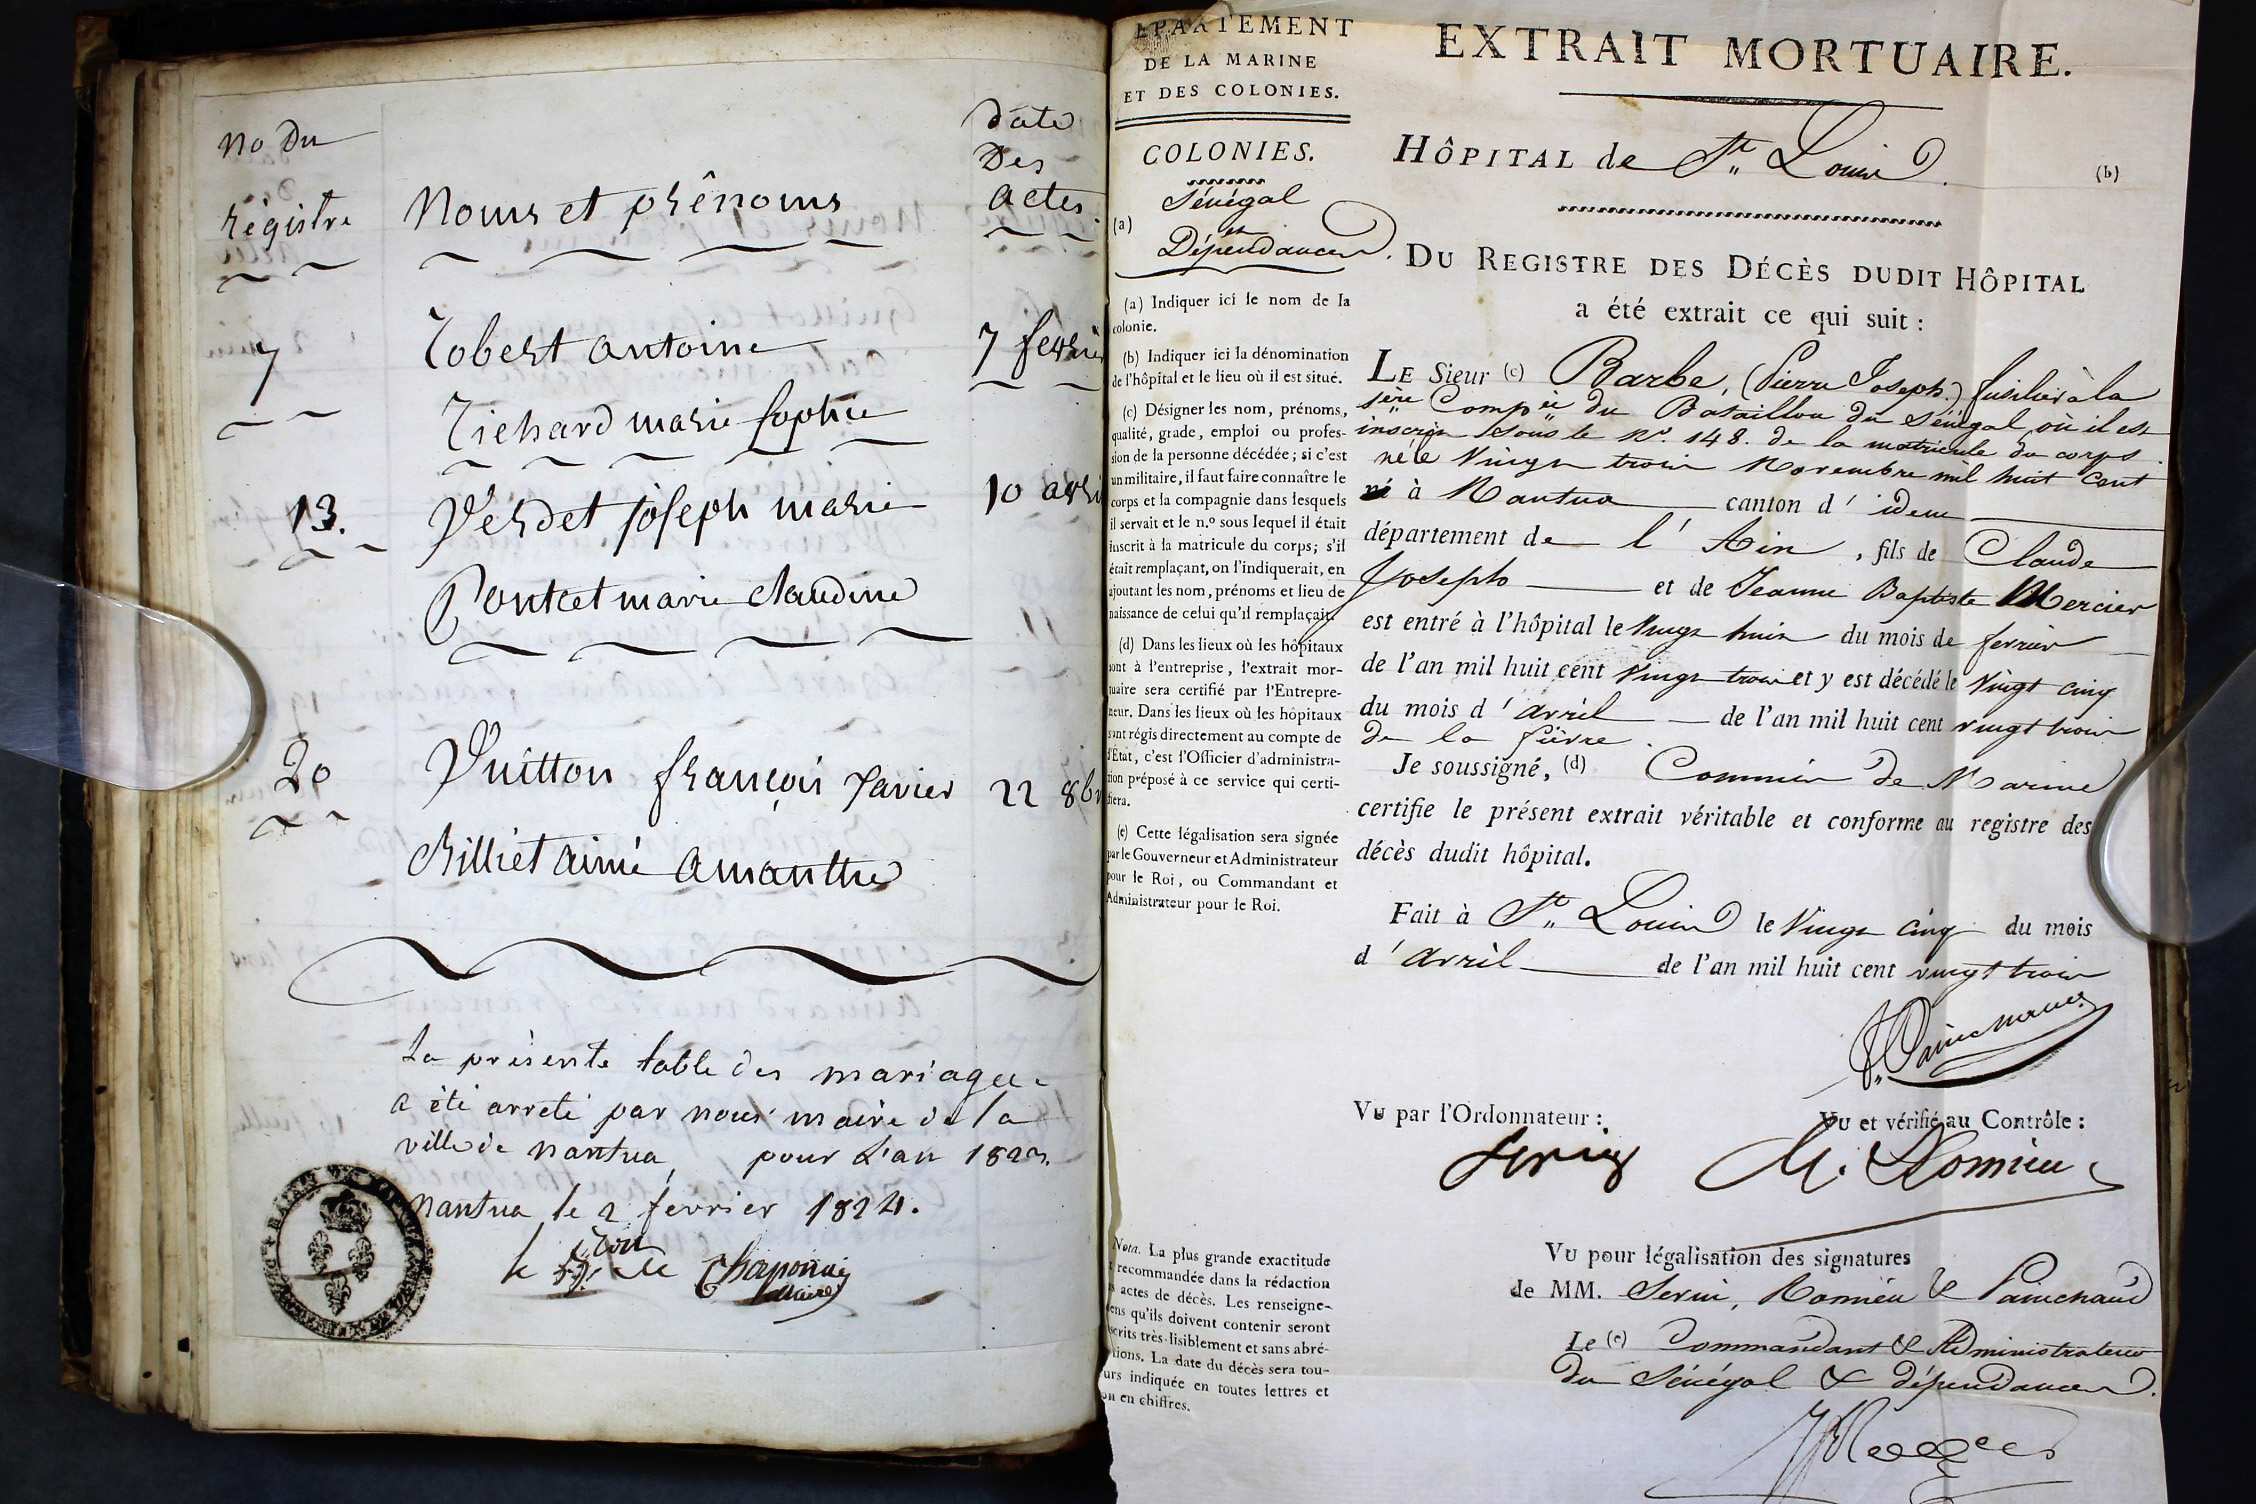 No du
registre
Noms et prénoms
date
des
actes.
7
Robert antoine
7 fevrie
Richard marie sophie
13.
Verdet joseph marie
10 avri
Pontcet marie claudine
20
Vuitton françois xavier
22 8b
Billiet aimé amanthe
La présente table des mariages
a été arreté par nous maire de la
ville de nantua, pour L'an 1823.
Nantua le 2 février 1824.
le
Chaponnay
Maire
EPARTEMENT
DE LA MARINE
ET DES COLONIES.
COLONIES.
Sénégal
(a)
et
Dépendances.
(a) Indiquer ici le nom de la
colonie.
(b) Indiquer ici la dénomination
de l'hôpital et le lieu où il est situé.
(c) Désigner les nom, prénoms,
qualité, grade, emploi ou profes-
sion de la personne décédée; si c'est
un militaire, il faut faire connaître le
corps et la compagnie dans lesquels
il servait et le n.º sous lequel il était
inscrit à la matricule du corps; s'il
était remplaçant, on l'indiquerait, en
ajoutant les nom, prénoms et lieu de
naissance de celui qu'il remplaçait.
(d) Dans les lieux où les hôpitaux
sont à l'entreprise, l'extrait mor-
tuaire sera certifié par l'Entrepre-
neur. Dans les lieux où les hôpitaux
sont régis directement au compte de
l'État, c'est l'Officier d'administra-
tion préposé à ce service qui certi-
fiera.
(e) Cette légalisation sera signée
par le Gouverneur et Administrateur
pour le Roi, ou Commandant et
Administrateur pour le Roi.
Nota. La plus grande exactitude
t recommandée dans la rédaction
s actes de décès. Les renseigne-
ens qu'ils doivent contenir seront
scrits très-lisiblement et sans abré-
tions. La date du décès sera tou-
urs indiquée en toutes lettres et
on en chiffres.
EXTRAIT MORTUAIRE.
HÔPITAL de St. Louis.
(b)
DU REGISTRE DES DÉCÈS DUDIT HÔPITAL
a été extrait ce qui suit :
LE Sieur (c) Barbe, (Pierre Joseph) fusilier à la
1ère Compie du Bataillon du Sénégal où il est
inscrit sous le No. 148. de la matricule du corps.
né le Vingt trois Novembre mil huit cent
né à Nantua canton d' idem
département de l' Ain, fils de Claude
Joseph et de Jeanne Baptiste Mercier
est entré à l'hôpital le Vingt huit du mois de fevrier
de l'an mil huit cent Vingt trois et y est décédé le Vingt cinq
du mois d' avril de l'an mil huit cent vingt trois
de la fièvre.
Je soussigné, (d) Commis de Marine
certifie le présent extrait véritable et conforme au registre des
décès dudit hôpital.
Fait à St. Louis le Vingt cinq du mois
d' avril de l'an mil huit cent vingt trois
Painchaud
Vu par l'Ordonnateur :
Vu et vérifié au Contrôle :
Serin
M. Romieu
Vu pour légalisation des signatures
de MM. Serin, Romieu & Painchaud
Le (e) Commandant & Administrateur
du Sénégal & dépendances.